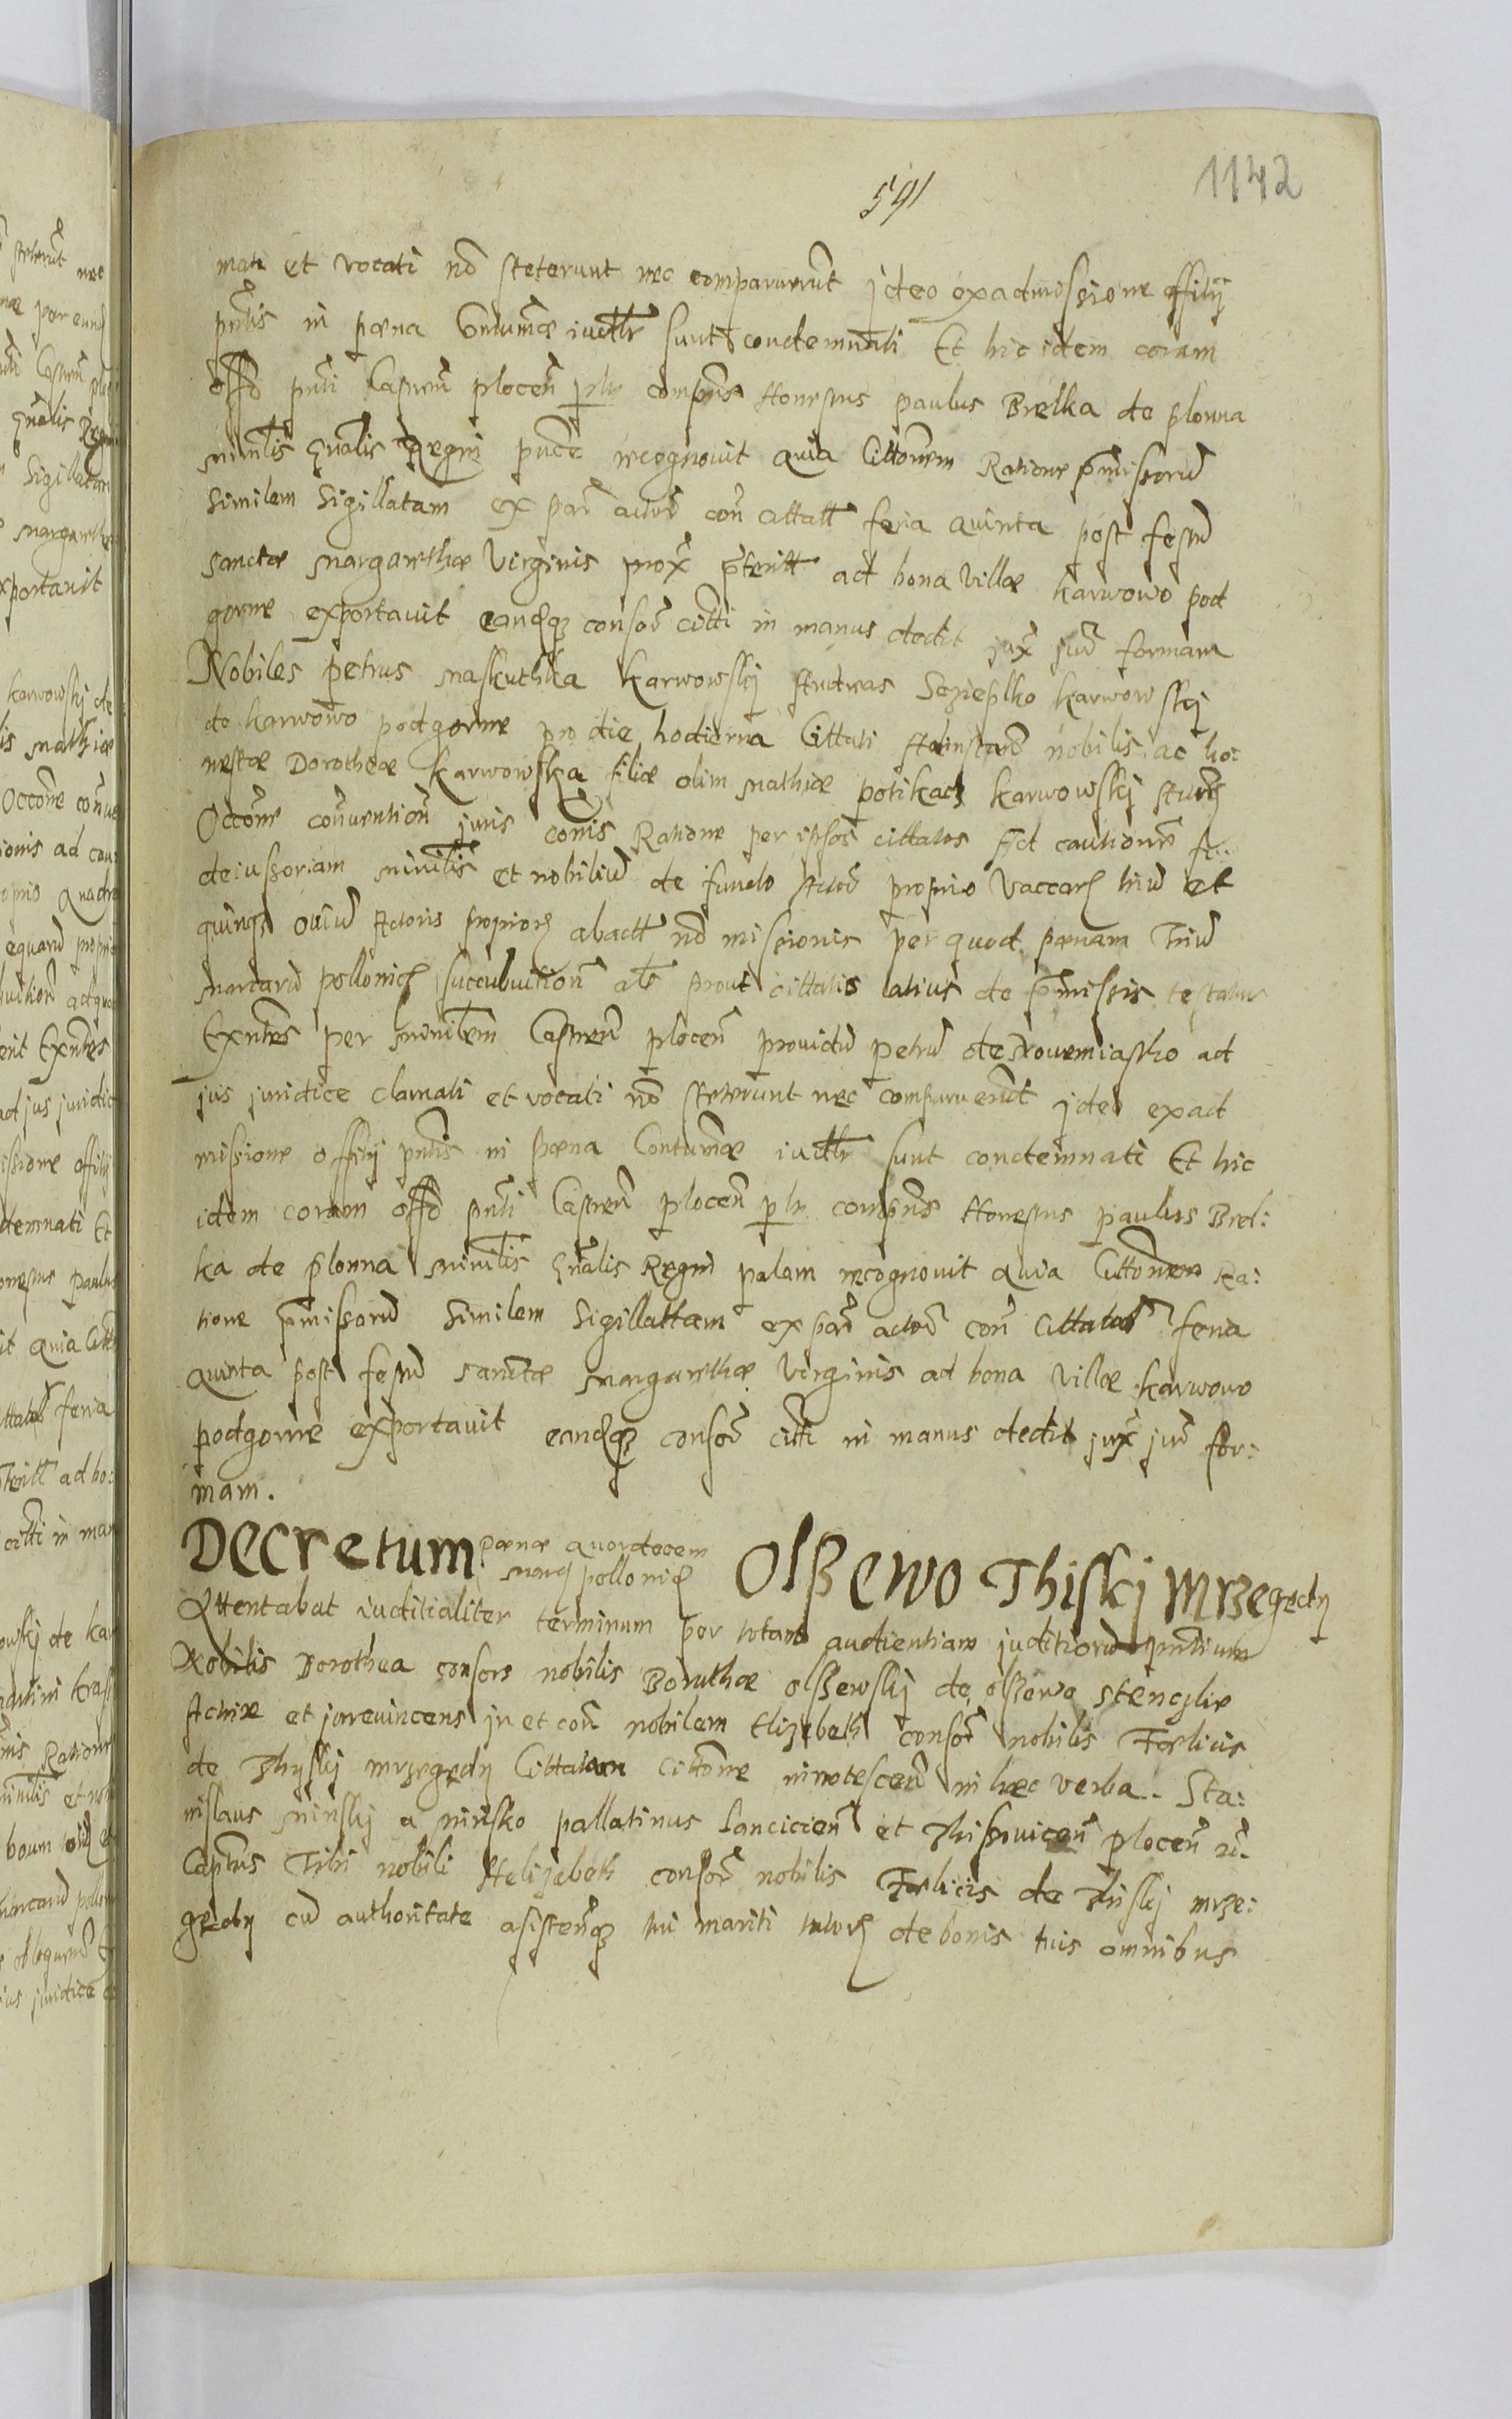 591
1142
mati et vocati nō steterunt nec comparuerūt jdeo ex admissione offitij
pn̄tis in pæna Contumæ iudtlr sunt condemnati Et hic idem coram
offō pn̄ti Castren̄ plocen̄ plr compn̄s Honestus paulus Brelka de plonna
ministlis gn̄alis Regni recognovit quia Cittōnem Ratione pmissorū
similem Sigillatam ex par actor con cittatt feria quinta post festū
sanctæ Margarethæ Virginis prox pteritt ad bona Villæ karwowo pod
gorne exportavit eandqʒ consor citti in manus dedit jux jur formam
Nobiles petrus Maskuthka Karwowskj Andreas Sczieplko karwowskj
de karwowo podgorne pro die hodierna Cittati Ad instan nobilis ac ho:
nestæ Dorotheæ Karwowska filiæ olim Mathiæ potikacz karwowskj
Occōne convention juris cōnis Ratione per ipsos cittatos Ad cautionē fi:
deiussoriam ministlis et nobiliū de fundo Actor proprio Vaccarz triū et
quinqʒ oviū Actoris propriorz abactt nō missionis per quod pænam Triū
Marcarū pollonicz succubuition als prout cittatio latius de pmissis testatur
Exn̄tes per Ministlem Castren̄ plocen̄ providū petrū de Novemiastho ad
jus juridice clamati et vocati nō steterunt nec comparuerūt jdeo ex ad
missione offitij pn̄tis in pæna Contumæ iudtlr sunt condemnati Et hic
idem coram offō pn̄ti Castren̄ plocen̄ plr compn̄s Honestus paulus Brel:
ka de plonna Ministlis gn̄alis Regni palam recognovit quia Cittōnem Ra:
tione pmissorū Similem Sigillattam ex par actor con cittatos feria
quinta post festū Sanctæ Margarethæ Virginis ad bona Villæ karwowo
podgorne exportavit eandqʒ consor citti in manus dedit jux jur for:
mam.
Decretum pænæ quordecem
Marcz pollonicz Olßewo Thiskj Mrzegedy
Attentabat iuditialiter terminum per totam audientiam juditiorū pn̄tium
Nobilis Dorothea consors nobilis Boruthæ olßewskj de olßewo stenczlie
Actrix et jurevincens in et con nobilem Elizabeth consor nobilis Foelicis
de Thyskj mrzegedy Cittatam cittōne innotescen in hec verba. Sta:
nislaus Minskj a minsko pallatinus Lancicien̄ et Plocen̄
Captn̄s Tibi nobili Helizabeth consor nobilis Foelicis de Thiskj mrze:
gedy cū authoritate asistenqʒ tui mariti tutorz de bonis tuis omnibus